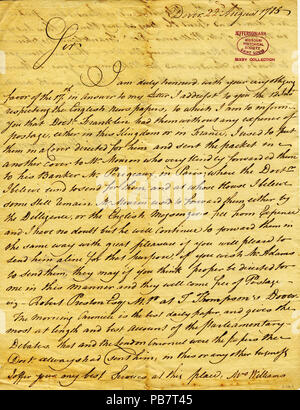 Dover 22d August 1785
Sir,
I am duly honored with your very obliging
favor of the 17th in Answer to my Letter I address'd to you the
respecting the English News papers, to which I am to inform
you that Doctr Franklin had them without any expence of
postage, either in this Kingdom or in France, I used to put
them in a Cover directed for him and sent the packet on
another Cover to Mr Mouron who very kindly forwarded them
to his Banker Mr where the Doctr
I believe used to send for them and at whose House I believe
some still remain. Mr Mouron used to forward them either by the
Diligence, or the English Messenger free from Expence
and I have no doubt but he will Continue to forward them in
the same way with great pleasure if you will please to
send him a line for that purpose, if you wish Mr Adams
to send them, they may if you think proper be directed for
me in this manner and they will come free of Postage
viz. Robert Preston Esqr M.P. at T. Thompson's Dover
The Morning Chronicle is the best daily paper and gives the
most at length and best account of the Parliamentary
Debates that and the London Chronicle were the papers the
Doctr always had sent him, in this or any other business
I offer you my best Services at this place, Mrs Williams
JEFFERSON
MISSOURI
HISTORICAL
SOCIETY
SAINT LOUIS
BIXBY COLLECTION
alamy
PB7T45